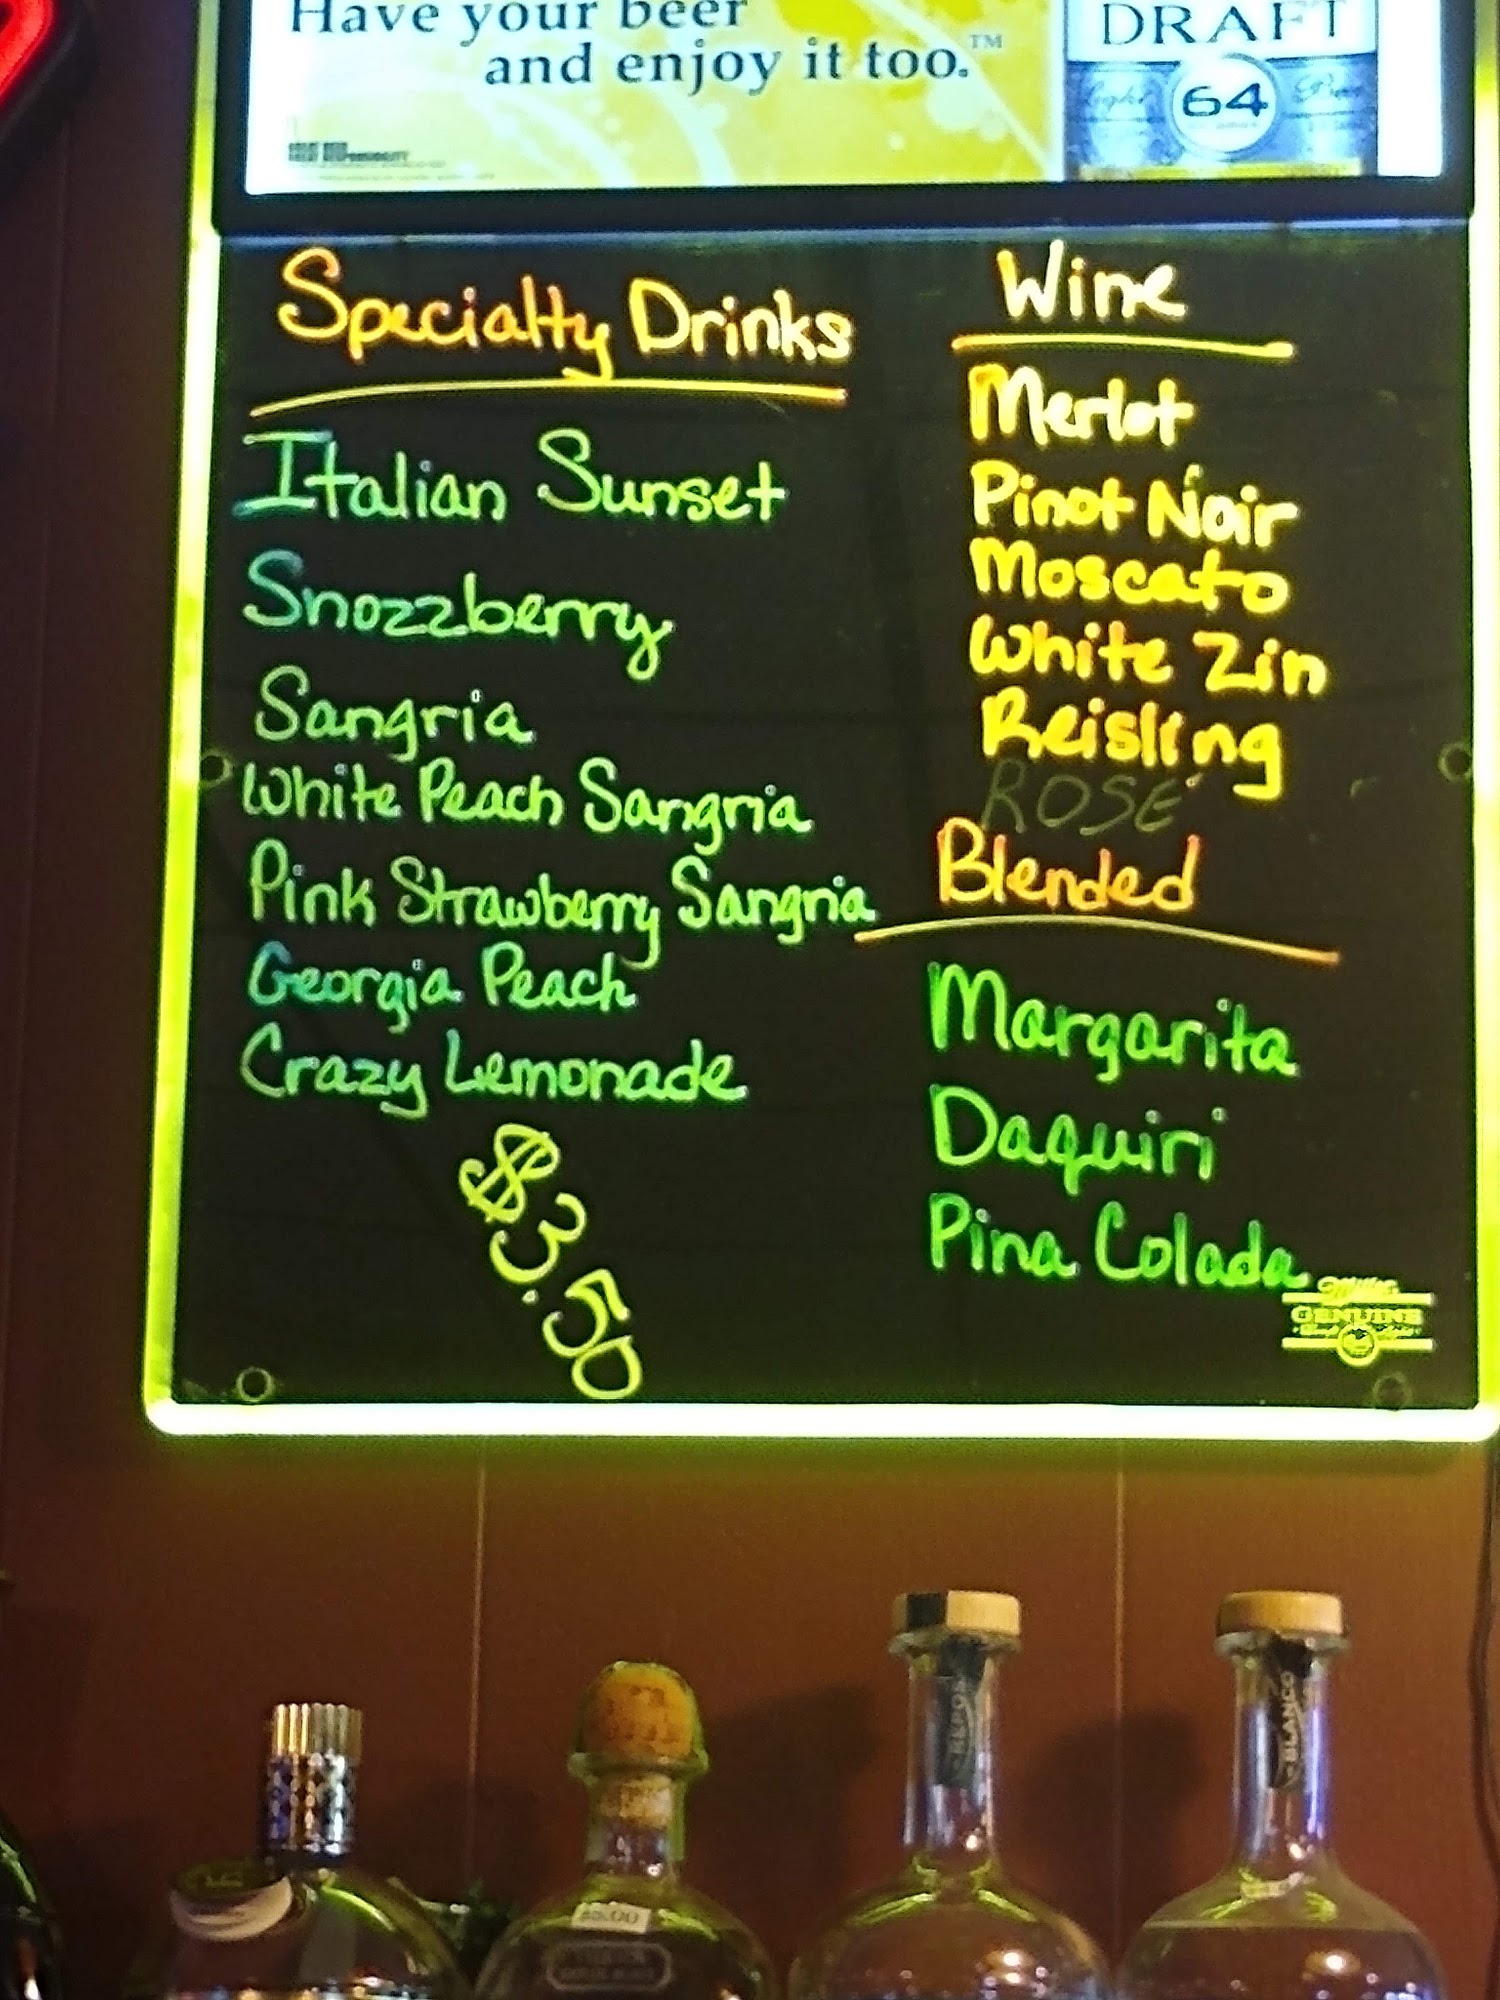 Have your beer
and enjoy it too.™
DRAFT
64
Specialty Drinks
Italian Sunset
Snozzberry
Sangria
White Peach Sangria
Pink Strawberry Sangria
Georgia Peach
Crazy Lemonade
$3.50
Wine
Merlot
Pinot Noir
Moscato
White Zin
Reisling
ROSE
Blended
Margarita
Daquiri
Pina Colada
Miller
GENUINE
BLANCO